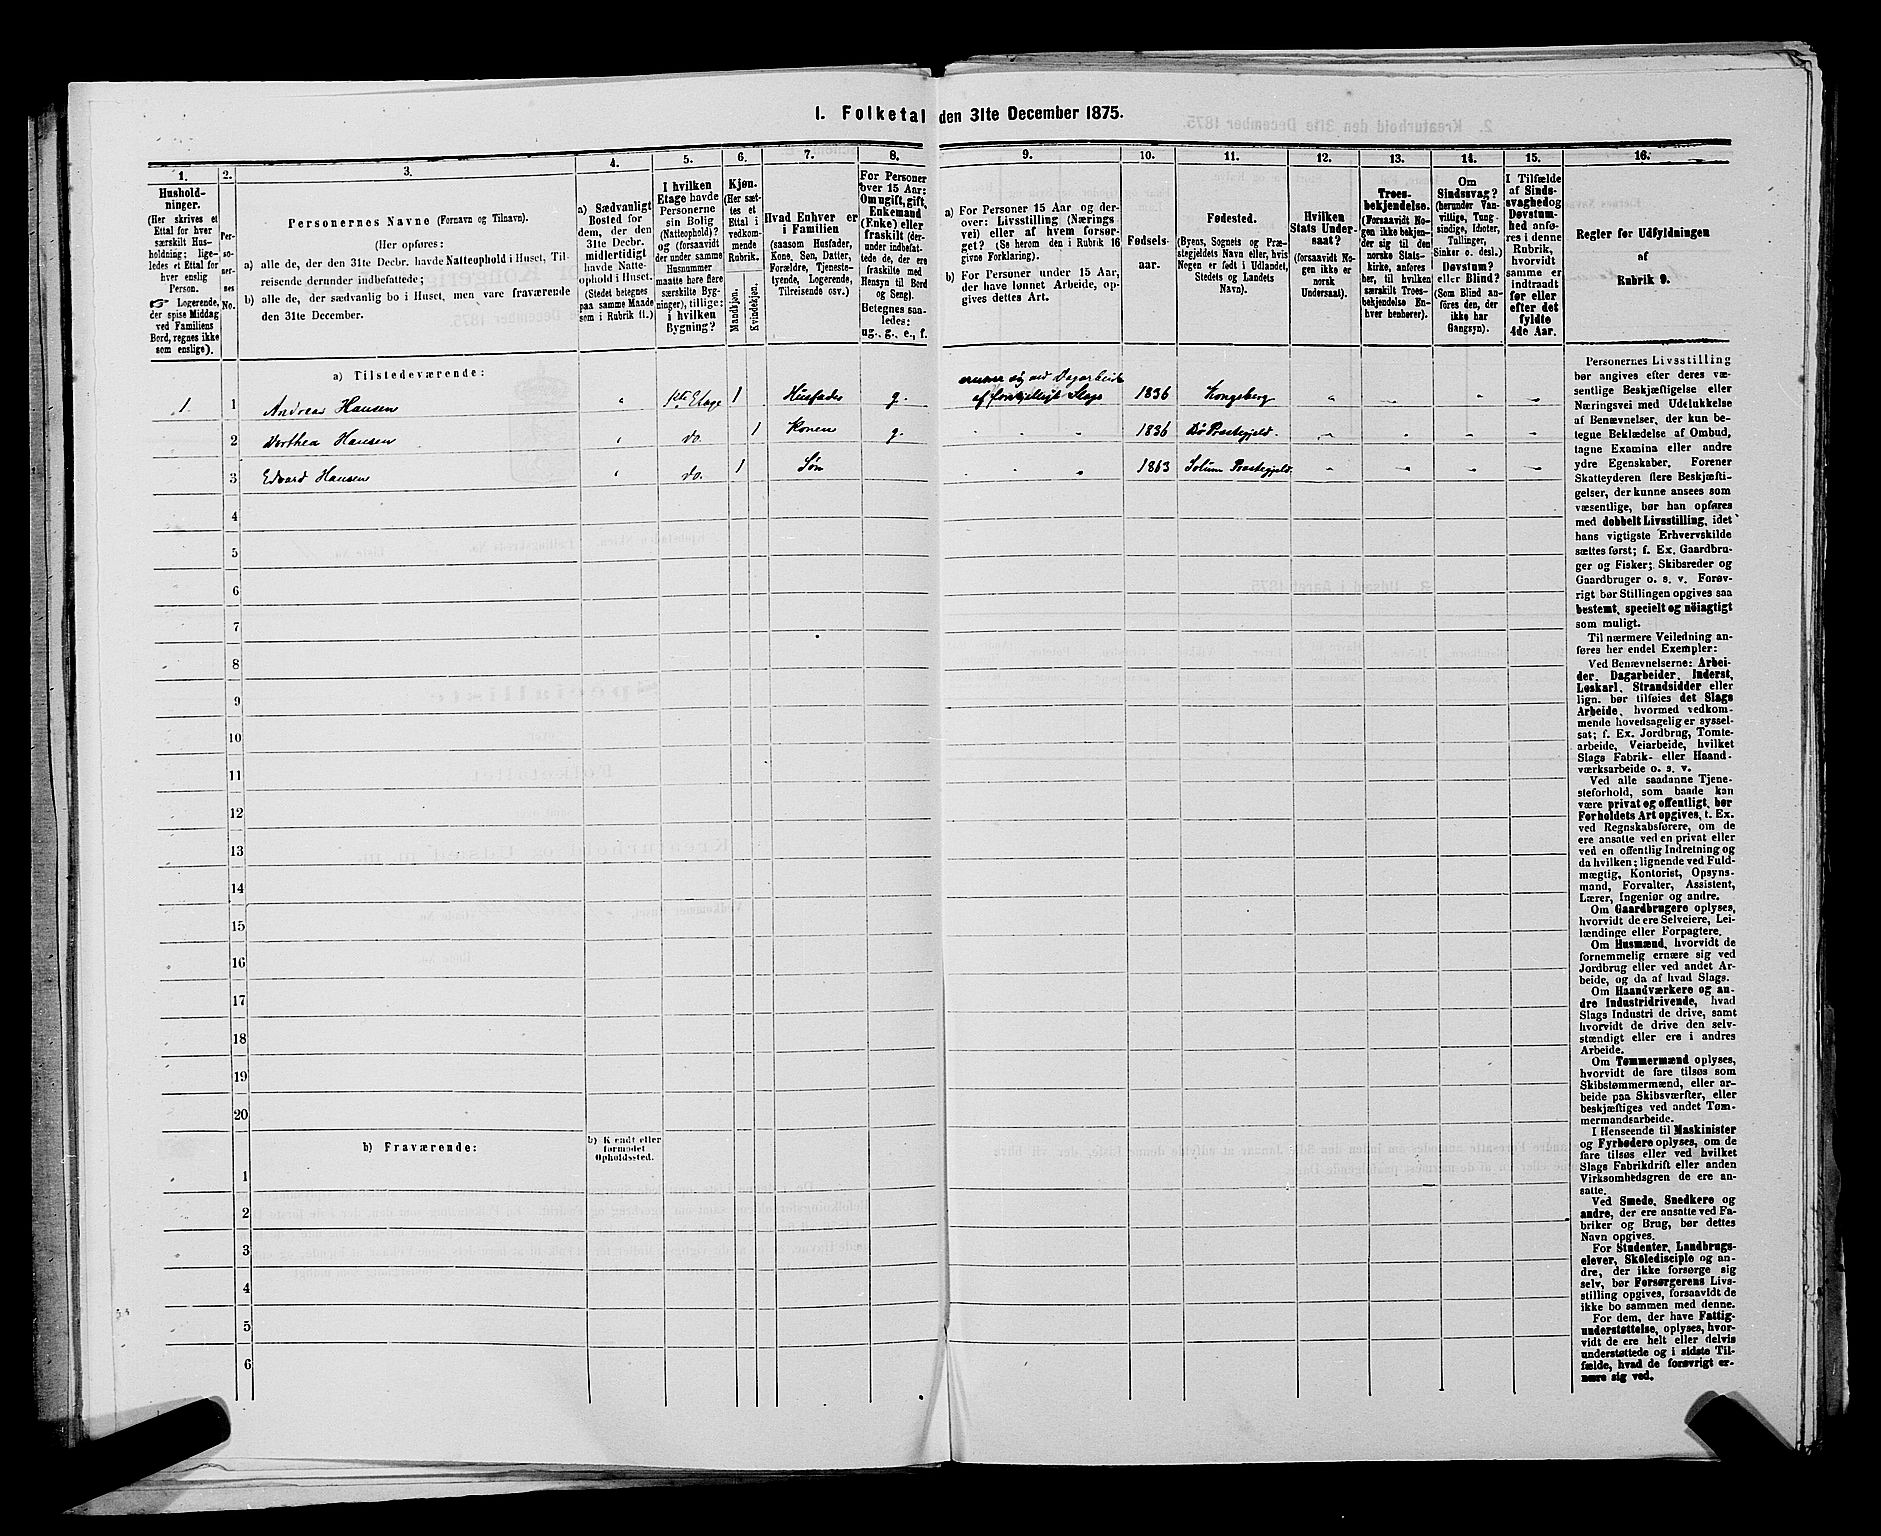 1. Folketal den 31te December 1875.
1. 2. 3. 4. 5. 6. 7. 8. 9. 10. 11. 12. 13. 14. 15. 16.
Hushold-
ninger.
(Her skrives et
Ettal for hver
særskilt Hus-
holdning; lige-
ledes et Ettal for
hver enslig
Person.
☞ Logerende,
der spise Middag
ved Familiens
Bord, regnes ikke
som enslige).
Per-
so-
ner-
nes
No.
Personernes Navne (Fornavn og Tilnavn).
(Her opføres:
a) alle de, der den 31te Decbr. havde Natteophold i Huset, Til-
reisende derunder indbefattede;
b) alle de, der sædvanlig bo i Huset, men vare fraværende
den 31te December.
a) Sædvanligt
Bosted for
dem, der den
31te Decbr.
midlertidigt
havde Natte-
ophold i Huset.
(Stedet betegnes
paa samme Maade
som i Rubrik 11.)
I hvilken
Etage havde
Personerne
sin Bolig
(Natteophold)?
og (forsaavidt
der under samme
Husnummer
maatte høre flere
særskilte Byg-
ninger), tillige:
i hvilken
Bygning?
Kjøn.
(Her sæt-
tes et
Ettal i
vedkom-
mende
Rubrik.
Mandkjøn.
Kvindekjøn.
Hvad Enhver er
i Familien
(saasom Husfader,
Kone, Søn, Datter,
Forældre, Tjeneste-
tyende, Logerende,
Tilreisende osv.)
For Personer
over 15 Aar:
Om ugift, gift,
Enkemand
(Enke) eller
fraskilt (der-
under indbefat-
tede de, der ere
fraskilte med
Hensyn til Bord
og Seng).
Betegnes saa-
ledes:
ug., g., e., f.
a) For Personer 15 Aar og der-
over: Livsstilling (Nærings-
vei) eller af hvem forsør-
get? (Se herom den i Rubrik 16
givne Forklaring).
b) For Personer under 15 Aar,
der have lønnet Arbeide, op-
gives dettes Art.
Fødsels-
aar.
Fødested.
(Byens, Sognets og Præ-
stegjeldets Navn eller, hvis
Nogen er født i Udlandet,
Stedets og Landets
Navn).
Hvilken
Stats Under-
saat?
(forsaavidt No-
gen ikke er
norsk
Undersaat).
Troes-
bekjendelse.
(Forsaavidt No-
gen ikke bekjen-
der sig til den
norske Stats-
kirke, anføres
her, til hvilken
særskilt Troes-
bekjendelse En-
hver henhører).
Om
Sindssvag?
(herunder Van-
vittige, Tung-
sindige, Idioter,
Tullinger,
Sinker o. desl.).
Døvstum?
eller Blind?
(Som Blind an-
føres den, der
ikke har
Gangsyn).
I Tilfælde
af Sinds-
svaghed og
Døvstum-
hed anfø-
res i denne
Rubrik,
hvorvidt
samme er
indtraadt
før eller
efter det
fyldte
4de Aar.
Regler for Udfyldningen
af
Rubrik 9.
a) Tilstedeværende:
ernærer sig ved Dagarbeide
1 1 Andreas Hansen " 1ste Etage 1 Husfader g. af forskjelligt Slags 1836 Kongsberg " " " "
2 Dorthea Hansen " do. 1 Konen g. " " 1836 Bø Præstegjeld. " " " "
3 Edvard Hansen " do. 1 Søn " " 1863 Solum Præstegjeld. " " " "
4
5
6
7
8
9
10
11
12
13
14
15
16
17
18
19
20
b) Fraværende:
b) Kjendt eller
formodet
Opholdssted.
1
2
3
4
5
6
Personernes Livsstilling
bør angives efter deres væ-
sentlige Beskjæftigelse eller
Næringsvei med Udelukkelse
af Benævnelser, der kun be-
tegne Beklædelse af Ombud,
tagne Examina eller andre
ydre Egenskaber. Forener
Skatteyderen flere Beskjæfti-
gelser, der kunne ansees som
væsentlige, bør han opføres
med dobbelt Livsstilling, idet
hans vigtigste Erhvervskilde
sættes først; f. Ex. Gaardbru-
ger og Fisker; Skibsreder og
Gaardbruger o. s. v. Forøv-
rigt bør Stillingen opgives saa
bestemt, specielt og nöiagtigt
som muligt.
Til nærmere Veiledning an-
føres her endel Exempler:
Ved Benævnelserne: Arbei-
der, Dagarbeider, Inderst,
Løskarl, Strandsidder eller
lign. bør tilføies det Slags
Arbeide, hvormed vedkom-
mende hovedsagelig er syssel-
sat; f. Ex. Jordbrug, Tomte-
arbeide, Veiarbeide, hvilket
Slags Fabrik- eller Haand-
værksarbeide o. s. v.
Ved alle saadanne Tjene-
steforhold, som baade kan
være privat og offentligt, bør
Forholdets Art opgives, t. Ex.
ved Regnskabsførere, om de
ere ansatte ved en privat eller
ved en offentlig Indretning og
da hvilken; lignende ved Fuld-
mægtig, Kontorist, Opsyns-
mand, Forvalter, Assistent,
Lærer, Ingeniør og andre.
Om Gaardbrugere oplyses,
hvorvidt de ere Selveiere, Lei-
lændinge eller Forpagtere.
Om Husmænd, hvorvidt de
fornemmelig ernære sig ved
Jordbrug eller ved andet Ar-
beide, og da af hvad Slags.
Om Haandværkere og an-
dre Industridrivende, hvad
Slags Industri de drive, samt
hvorvidt de drive den selv-
stændigt eller ere i andres
Arbeide.
Om Tømmermænd oplyses,
hvorvidt de fare tilsøs som
Skibstømmermænd, eller ar-
beide paa Skibsværfter, eller
beskjæftiges ved andet Tøm-
mermandsarbeide.
I Henseende til Maskinister
og Fyrbødere oplyses, om de
fare tilsøs eller ved hvilket
Slags Fabrikdrift eller anden
Virksomhedsgren de ere an-
satte.
Ved Smede, Snedkere og
andre, der ere ansatte ved Fa-
briker og Brug, bør dettes
Navn opgives.
For Studenter, Landbrugs-
elever, Skoledisciple og an-
dre, der ikke forsørge sig
selv, bør Forsørgerens Livs-
stilling opgives, forsaavidt de
ikke bo sammen med denne.
For dem, der have Fattig-
understøttelse, oplyses, hvor-
vidt de ere helt eller delvis
understøttede og i sidste Til-
fælde, hvad de forøvrigt er-
nære sig ved.